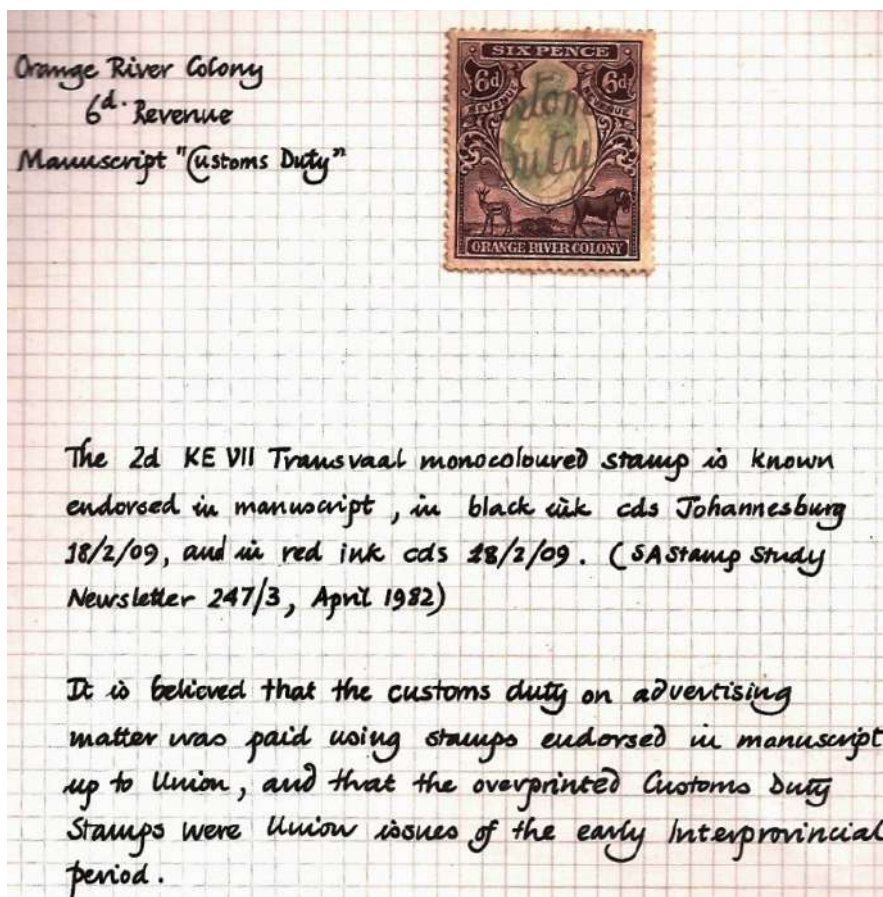 Orange River Colony
6d. Revenue
Manuscript "Customs Duty"
SIX PENCE
6d 6d
REVENUE REVENUE
Duty
ORANGE RIVER COLONY
The 2d KE VII Transvaal monocoloured stamp is known
endorsed in manuscript, in black ink cds Johannesburg
18/2/09, and in red ink cds 18/2/09. (SA Stamp Study
Newsletter 247/3, April 1982)
It is believed that the customs duty on advertising
matter was paid using stamps endorsed in manuscript
up to Union, and that the overprinted Customs Duty
Stamps were Union issues of the early Interprovincial
period.